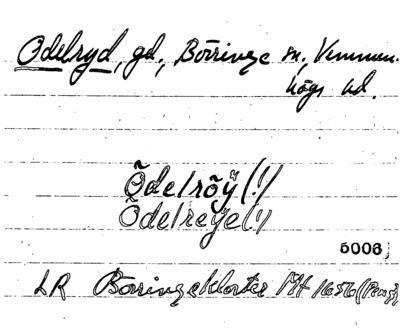 Odelryd, gd, Börringe sn, Vemmen-
högs hd.
Õdelrõÿ(!)
Õdelreÿe(!)
5006
LR Börringekloster Mt 1656 (Pens)